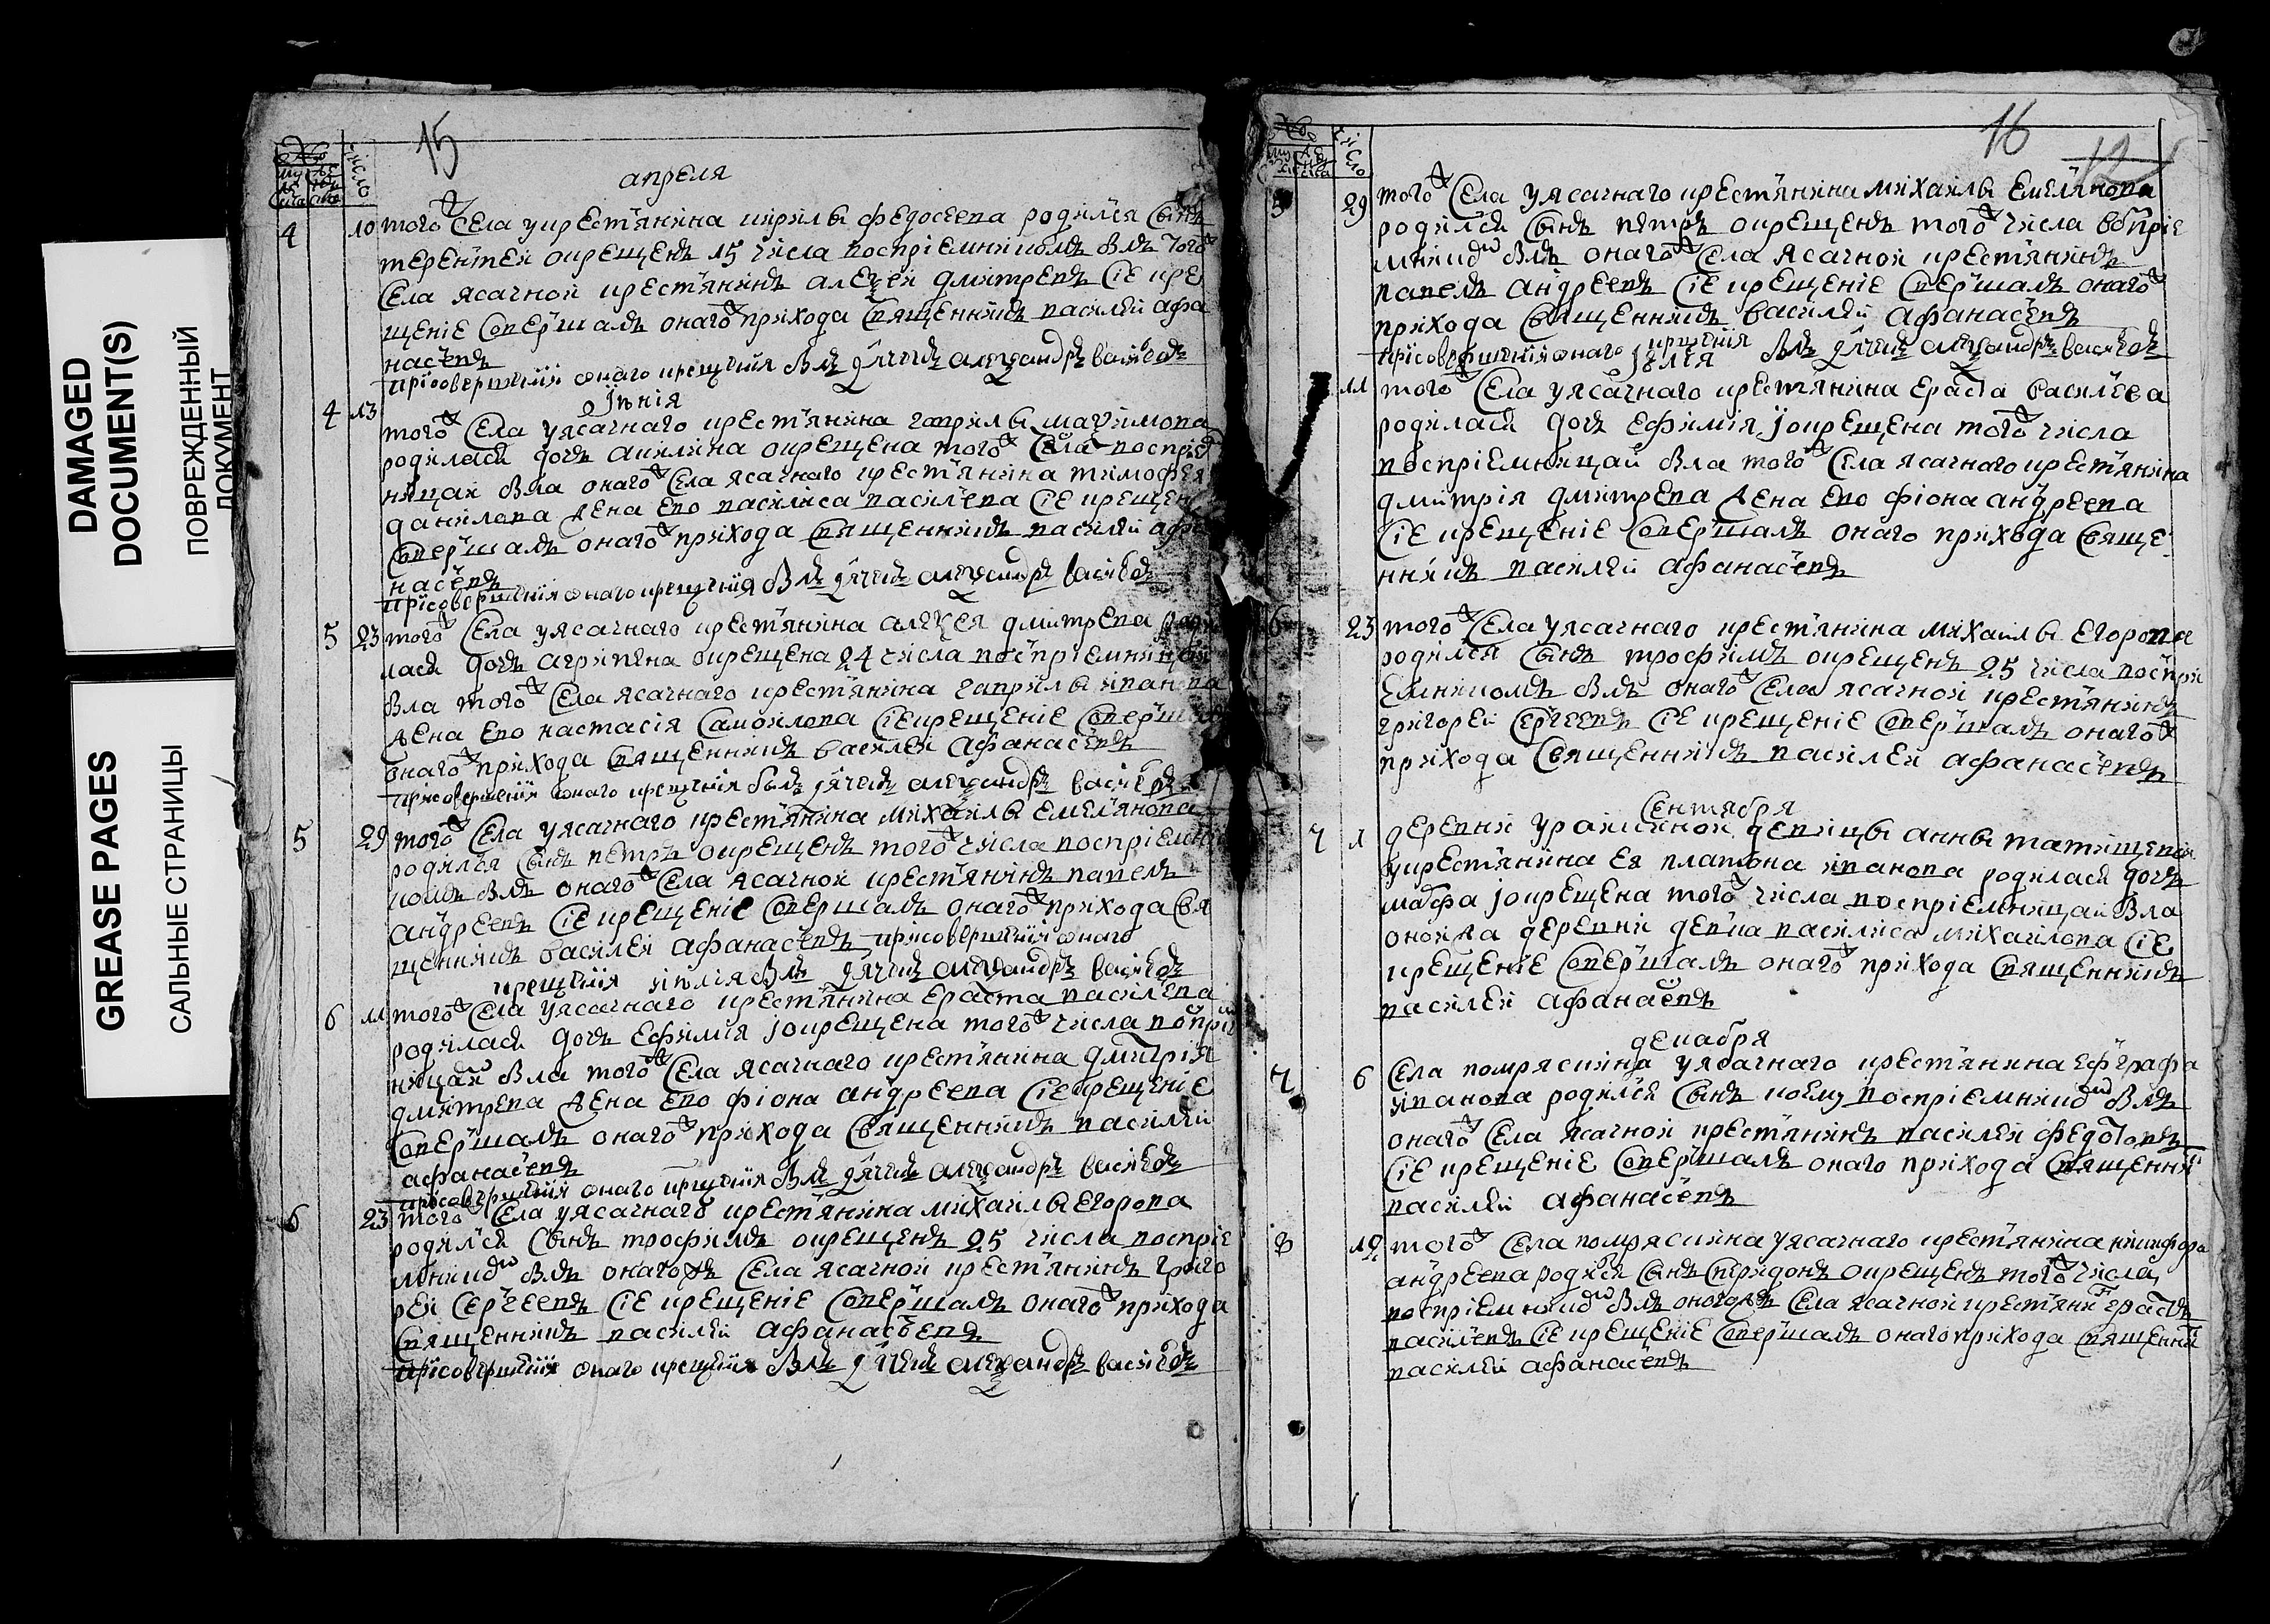 DAMAGED
DOCUMENT(S)
ПОВРЕЖДЕННЫЙ
ДОКУМЕНТ
GREASE PAGES
САЛЬНЫЕ СТРАНИЦЫ
15
число
апреля
4 10 того ж села у крестьянина кирилы федосеева родился сынъ
терентей окрещенъ 15 числа воспріемникомъ былъ того ж
села ясачной крестьянинъ алеѯей дмитревъ сіе кре
щеніе совершалъ онаго ж прихода священникъ василей афа
насьевъ
при совершеніи онаго крещенія былъ дячекъ алеѯандръ васильевъ
іюнія
4 13 того ж села у ясачнаго крестьянина гаврилы маѯимова
родилась дочь акилина окрещена того ж села воспріем
ницай была онаго ж села ясачнаго крестьянина тимофея
данилова жена ево василиса васильева сіе крещен
совершалъ онаго ж прихода священникъ василей афа
насьевъ
при совершеніи онаго крещенія былъ дячекъ алеѯандръ васильевъ
5 23 того ж села у ясачнаго крестьянина алеѯея дмитрева роди
лась дочь агрипена окрещена 24 числа воспріемницай
была того ж села ясачнаго крестьянина гаврилы иванова
жена ево настасія самойлова сіе крещеніе совершалъ
онаго ж прихода священникъ василей афанасьевъ
при совершеніи онаго крещенія былъ дячекъ алеѯандръ васильевъ
5 29 того ж села у ясачнаго крестьянина михайлы емельянова
родился сынъ петръ окрещенъ того ж числа воспріемни
комъ былъ онаго ж села ясачной крестьянинъ павелъ
андреевъ сіе крещеніе совершалъ онаго ж прихода свя
щенникъ василей афанасьевъ при совершеніи онаго
крещенія іюлія былъ дячекъ алеѯандръ васильевъ
6 11 того ж села у ясачнаго крестьянина ераста васильева
родилась дочь ефимія і окрещена того ж числа воспріем
ницай была того ж села ясачнаго крестьянина дмитрія
дмитрева жена ево фіона андреева сіе крещеніе
совершалъ онаго ж прихода священникъ василей
афанасьевъ
при совершеніи онаго крещенія былъ дячекъ алеѯандръ васильевъ
6 23 того ж села у ясачнаго крестьянина михайлы егорова
родился сынъ трофимъ окрещенъ 25 числа воспріе
мникомъ былъ онаго жъ села ясачной крестьянинъ григо
рей сергеевъ сіе крещеніе совершалъ онаго ж прихода
священникъ василей афанасьевъ
при совершеніи онаго крещенія былъ дячекъ алеѯандръ васильевъ
16
12
число
5 29 того ж села у ясачнаго крестьянина михайлы емельянова
родился сынъ петръ окрещенъ того ж числа воспріе
мникомъ былъ онаго ж села ясачной крестьянинъ
павелъ андреевъ сіе крещеніе совершалъ онаго ж
прихода священникъ василей афанасьевъ
при совершеніи онаго крещенія былъ дячекъ алеѯандръ васильевъ
іюлія
11 того ж села у ясачнаго крестьянина ераста васильева
родилась дочь ефимія і окрещена того ж числа
воспріемницай была того ж села ясачнаго крестьянина
дмитрія дмитрева жена ево фіона андреева
сіе крещеніе совершалъ онаго прихода священ
нникъ василей афанасьевъ
6 23 того ж села у ясачнаго крестьянина михайлы егорова
родился сынъ трофимъ окрещенъ 25 числа воспри
емникомъ былъ онаго ж села ясачной крестьянинъ
григорей сергеевъ сіе крещеніе совершалъ онаго ж
прихода священникъ василей афанасьевъ
сентября
7 1 деревни девицы анны татищевой
у крестьянина ея платона иванова родилась дочь
марфа і окрещена того ж числа воспріемницай была
оной жа деревни девка василиса михайлова сіе
крещеніе совершалъ онаго ж прихода священникъ
василей афанасьевъ
декабря
7 6 села помряскина у ясачнаго крестьянина ефграфа
иванова родился сынъ коему воспріемникомъ былъ
онаго ж села ясачной крестьянинъ василей федотовъ
сіе крещеніе совершалъ онаго прихода священник
василей афанасьевъ
8 того ж села помряскина у ясачнаго крестьянина никифора
андреева родился сынъ спиридонъ окрещенъ того ж числа
воспріемникомъ былъ онаго жъ села ясачной крестьянин ерастъ
васильевъ сіе крещеніе совершалъ онаго прихода священник
василей афанасьевъ